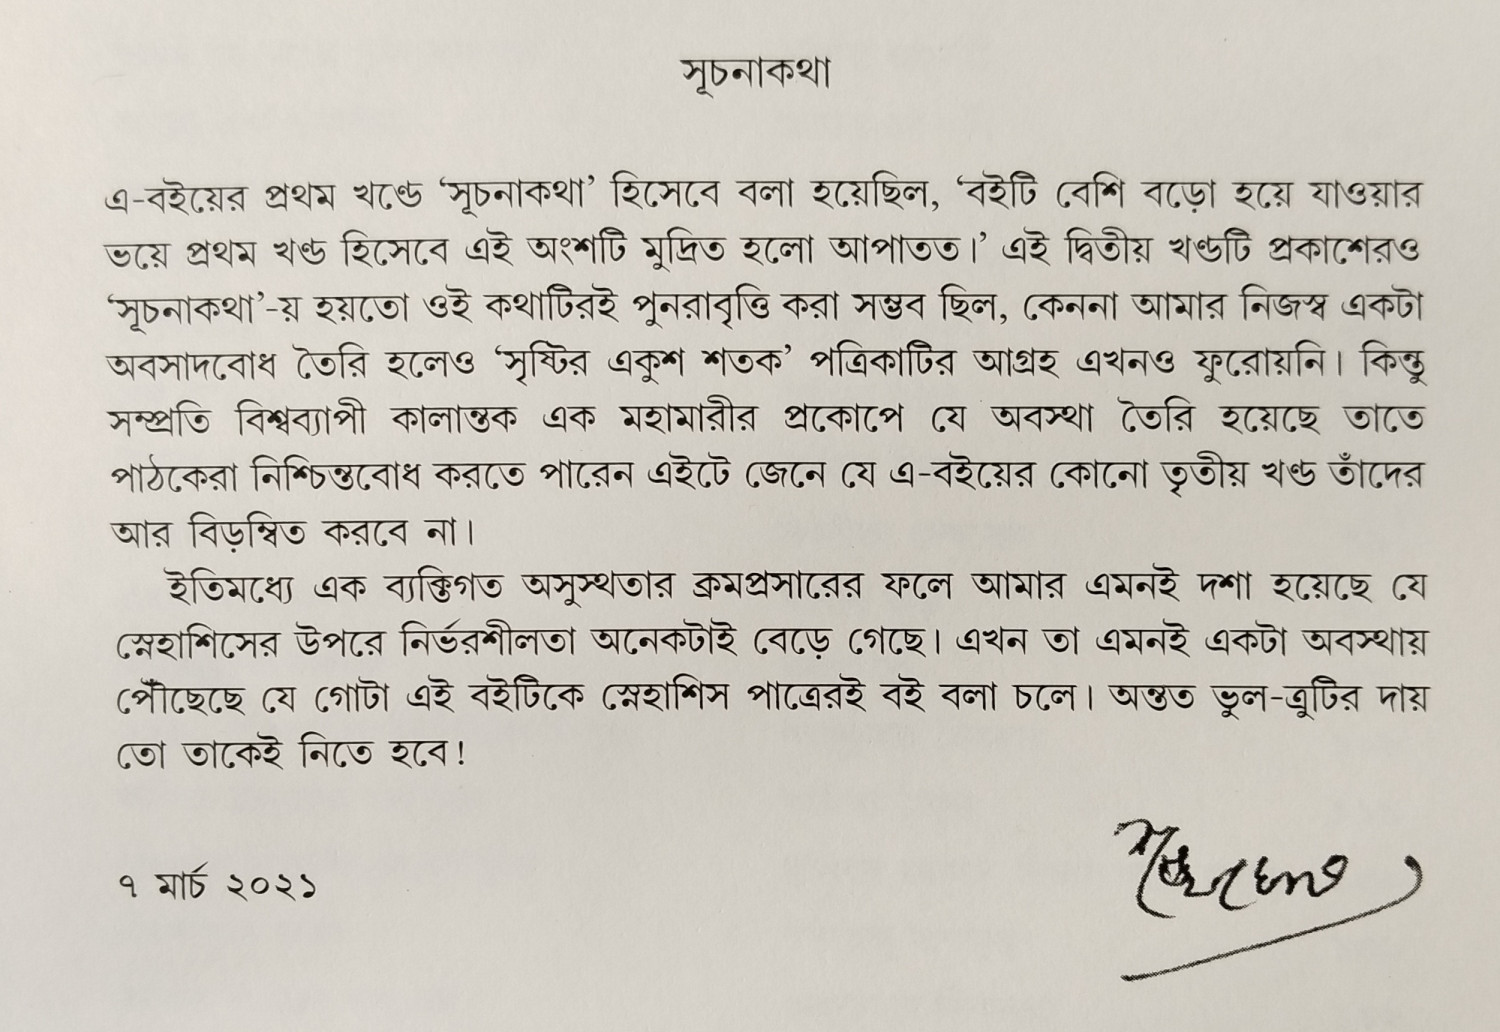 সূচনাকথা
এ-বইয়ের প্রথম খণ্ডে ‘সূচনাকথা’ হিসেবে বলা হয়েছিল, ‘বইটি বেশি বড়ো হয়ে যাওয়ার
ভয়ে প্রথম খণ্ড হিসেবে এই অংশটি মুদ্রিত হলো আপাতত।’ এই দ্বিতীয় খণ্ডটি প্রকাশেরও
‘সূচনাকথা’-য় হয়তো ওই কথাটিরই পুনরাবৃত্তি করা সম্ভব ছিল, কেননা আমার নিজস্ব একটা
অবসাদবোধ তৈরি হলেও ‘সৃষ্টির একুশ শতক’ পত্রিকাটির আগ্রহ এখনও ফুরোয়নি। কিন্তু
সম্প্রতি বিশ্বব্যাপী কালান্তক এক মহামারীর প্রকোপে যে অবস্থা তৈরি হয়েছে তাতে
পাঠকেরা নিশ্চিন্তবোধ করতে পারেন এইটে জেনে যে এ-বইয়ের কোনো তৃতীয় খণ্ড তাঁদের
আর বিড়ম্বিত করবে না।
ইতিমধ্যে এক ব্যক্তিগত অসুস্থতার ক্রমপ্রসারের ফলে আমার এমনই দশা হয়েছে যে
স্নেহাশিসের উপরে নির্ভরশীলতা অনেকটাই বেড়ে গেছে। এখন তা এমনই একটা অবস্থায়
পৌঁছেছে যে গোটা এই বইটিকে স্নেহাশিস পাত্রেরই বই বলা চলে। অন্তত ভুল-ত্রুটির দায়
তো তাকেই নিতে হবে!
৭ মার্চ ২০২১